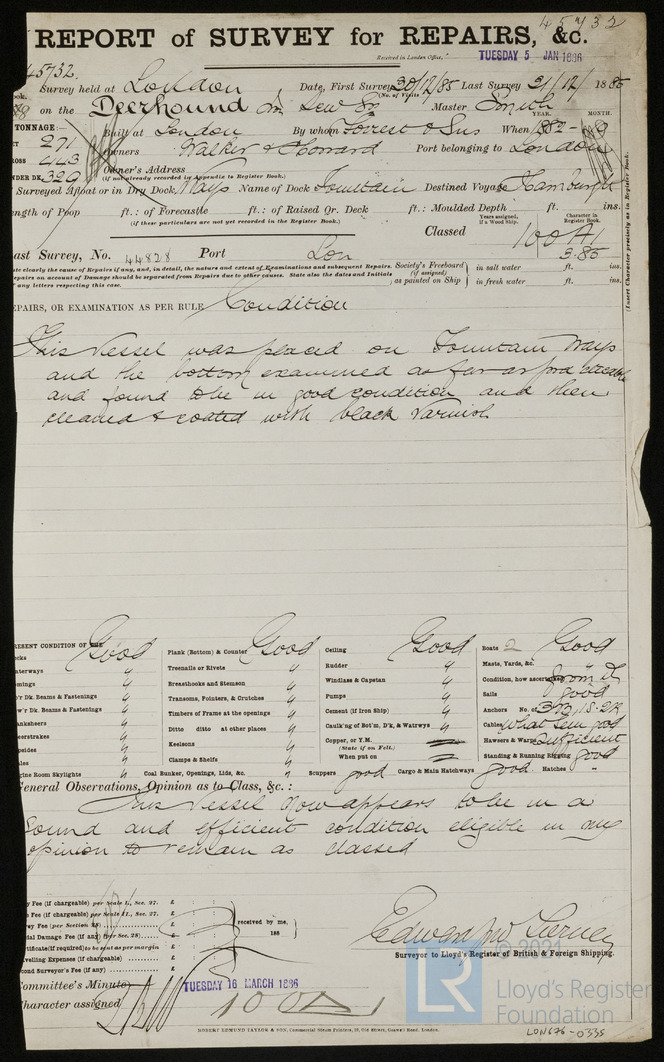 45732
REPORT of SURVEY for REPAIRS, &c.
Received in London Office, TUESDAY 5 JAN 1886
45732.
Survey held at London Date, First Survey 30/12/85 Last Survey 31/12/ 1885
(No. of Visits
on the Deerhound Master Smith
TONNAGE:— Built at London By whom Forrest & Son When 1882 -
YEAR. MONTH.
271
443 Owners Walker & Howard Port belonging to London
UNDER DK. 329 Owner's Address
(if not already recorded in Appendix to Register Book.)
Surveyed Afloat or in Dry Dock Ways Name of Dock Fountain Destined Voyage Hamburgh
Length of Poop ft.: of Forecastle ft.: of Raised Qr. Deck ft.: Moulded Depth ft. ins.
(if these particulars are not yet recorded in the Register Book.)
Years assigned, if a Wood Ship. Character in Register Book.
Classed 100 A1
3.85
(Insert Character precisely as in Register Book.)
Last Survey, No. 44828 Port Lon
state clearly the cause of Repairs if any, and, in detail, the nature and extent of Examinations and subsequent Repairs.
Repairs on account of Damage should be separated from Repairs due to other causes. State also the dates and Initials
any letters respecting this case.
Society's Freeboard (if assigned) as painted on Ship
in salt water ft. ins.
in fresh water ft. ins.
REPAIRS, OR EXAMINATION AS PER RULE Condition
This Vessel was placed on Fountain Ways
and the bottom examined as far as practicable
and found to be in good condition and then
cleaned & coated with black Varnish
PRESENT CONDITION OF THE
Decks Good
Waterways "
Comings "
Up'r Dk. Beams & Fastenings "
Low'r Dk. Beams & Fastenings "
Planksheers "
Sheerstrakes "
Topsides "
Wales "
Engine Room Skylights "
Plank (Bottom) & Counter Good
Treenails or Rivets "
Breasthooks and Stemson "
Transoms, Pointers, & Crutches "
Timbers of Frame at the openings "
Ditto ditto at other places "
Keelsons "
Clamps & Shelfs "
Coal Bunker, Openings, Lids, &c. "
Ceiling Good
Rudder "
Windlass & Capstan "
Pumps "
Cement (if Iron Ship) "
Caulk'ng of Bot'm, D'k, & Watrwys "
Copper, or Y.M.
(State if on Felt.)
When put on
Scuppers good Cargo & Main Hatchways good Hatches "
Boats 2 Good
Masts, Yards, &c. "
Condition, how ascertained from Dk
Sails good
Anchors No. of 3
Cables What seen good
Hawsers & Warps Sufficient
Standing & Running Rigging good
General Observations, Opinion as to Class, &c. :
This Vessel now appears to be in a
sound and efficient condition eligible in my
opinion to remain as classed
Fee (if chargeable) per Scale I., Sec. 27. £ : :
Fee (if chargeable) per Scale II., Sec. 27. £ : :
Fee (per Section 28) £ : :
Damage Fee (if any) (per Sec. 28) £ : :
Certificate (if required) to be sent as per margin
Travelling Expenses (if chargeable) £ : :
Second Surveyor's Fee (if any) £ : :
received by me,
188
Surveyor to Lloyd's Register of British & Foreign Shipping.
Committee's Minute TUESDAY 16 MARCH 1886
Character assigned 100 A 1
© 2021
LR
Lloyd's Register
Foundation
ROBERT EDMUND TAYLOR & SON, Commercial Steam Printers, 19, Old Street, Goswell Road, London.
LON676-0335